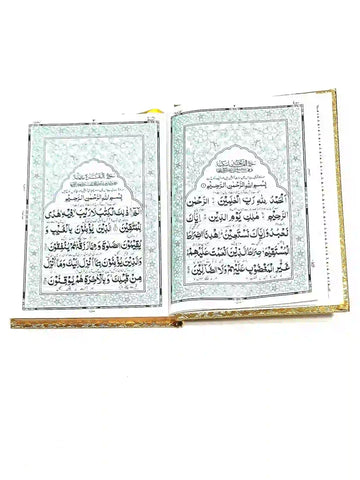 بِسْمِ اللهِ الرَّحْمٰنِ الرَّحِيْمِ
اَلْحَمْدُ لِلّٰهِ رَبِّ الْعٰلَمِيْنَ ۙ الرَّحْمٰنِ
الرَّحِيْمِ ۙ مٰلِكِ يَوْمِ الدِّيْنِ ؕ اِيَّاكَ
نَعْبُدُ وَاِيَّاكَ نَسْتَعِيْنُ ؕ اِهْدِنَا الصِّرَاطَ
الْمُسْتَقِيْمَ ۙ صِرَاطَ الَّذِيْنَ اَنْعَمْتَ عَلَيْهِمْ
غَيْرِ الْمَغْضُوْبِ عَلَيْهِمْ وَلَا الضَّآلِّيْنَ
بِسْمِ اللهِ الرَّحْمٰنِ الرَّحِيْمِ
الٓمّٓ ۚ ذٰلِكَ الْكِتٰبُ لَا رَيْبَ فِيْهِ هُدًى
لِّلْمُتَّقِيْنَ الَّذِيْنَ يُؤْمِنُوْنَ بِالْغَيْبِ وَ
يُقِيْمُوْنَ الصَّلٰوةَ وَمِمَّا رَزَقْنٰهُمْ يُنْفِقُوْنَ
وَالَّذِيْنَ يُؤْمِنُوْنَ بِمَآ اُنْزِلَ اِلَيْكَ وَمَآ اُنْزِلَ
مِنْ قَبْلِكَ وَبِالْاٰخِرَةِ هُمْ يُوْقِنُوْنَ